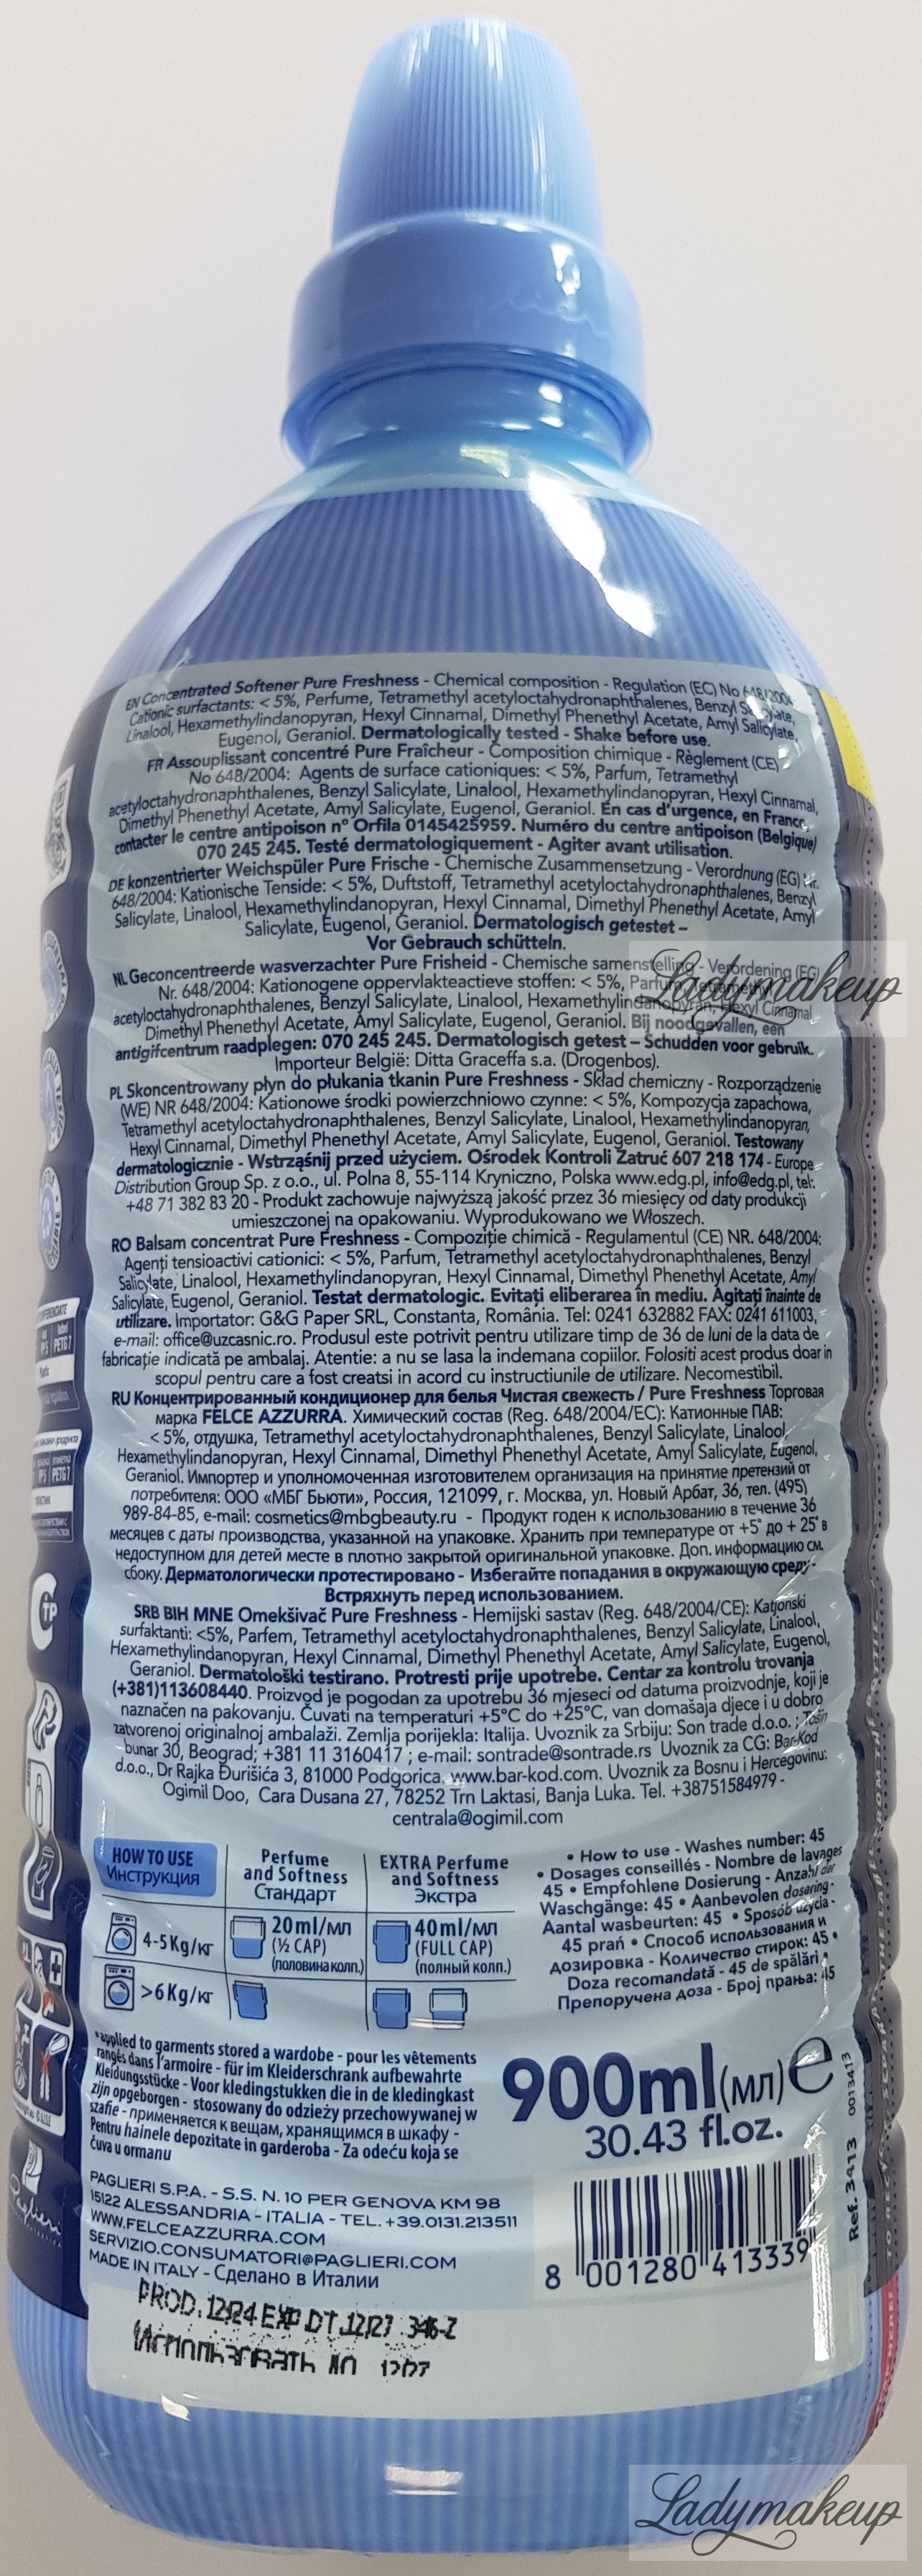 EN Concentrated Softener Pure Freshness - Chemical composition - Regulation (EC) No 648/2004
Cationic surfactants: < 5%, Perfume, Tetramethyl acetyloctahydronaphthalenes, Benzyl Salicylate,
Linalool, Hexamethylindanopyran, Hexyl Cinnamal, Dimethyl Phenethyl Acetate, Amyl Salicylate,
Eugenol, Geraniol. Dermatologically tested - Shake before use.
FR Assouplissant concentré Pure Fraîcheur - Composition chimique - Règlement (CE)
No 648/2004: Agents de surface cationiques: < 5%, Parfum, Tetramethyl
acetyloctahydronaphthalenes, Benzyl Salicylate, Linalool, Hexamethylindanopyran, Hexyl Cinnamal,
Dimethyl Phenethyl Acetate, Amyl Salicylate, Eugenol, Geraniol. En cas d'urgence, en France,
contacter le centre antipoison n° Orfila 0145425959. Numéro du centre antipoison (Belgique)
070 245 245. Testé dermatologiquement - Agiter avant utilisation.
DE konzentrierter Weichspüler Pure Frische - Chemische Zusammensetzung - Verordnung (EG) Nr.
648/2004: Kationische Tenside: < 5%, Duftstoff, Tetramethyl acetyloctahydronaphthalenes, Benzyl
Salicylate, Linalool, Hexamethylindanopyran, Hexyl Cinnamal, Dimethyl Phenethyl Acetate, Amyl
Salicylate, Eugenol, Geraniol. Dermatologisch getestet –
Vor Gebrauch schütteln.
NL Geconcentreerde wasverzachter Pure Frisheid - Chemische samenstelling - Verordening (EG)
Nr. 648/2004: Kationogene oppervlakteactieve stoffen: < 5%, Parfum, Tetramethyl
acetyloctahydronaphthalenes, Benzyl Salicylate, Linalool, Hexamethylindanopyran, Hexyl Cinnamal,
Dimethyl Phenethyl Acetate, Amyl Salicylate, Eugenol, Geraniol. Bij noodgevallen, een
antigifcentrum raadplegen: 070 245 245. Dermatologisch getest – Schudden voor gebruik.
Importeur België: Ditta Graceffa s.a. (Drogenbos).
PL Skoncentrowany płyn do płukania tkanin Pure Freshness - Skład chemiczny - Rozporządzenie
(WE) NR 648/2004: Kationowe środki powierzchniowo czynne: < 5%, Kompozycja zapachowa,
Tetramethyl acetyloctahydronaphthalenes, Benzyl Salicylate, Linalool, Hexamethylindanopyran,
Hexyl Cinnamal, Dimethyl Phenethyl Acetate, Amyl Salicylate, Eugenol, Geraniol. Testowany
dermatologicznie - Wstrząśnij przed użyciem. Ośrodek Kontroli Zatruć 607 218 174 - Europe
Distribution Group Sp. z o.o., ul. Polna 8, 55-114 Kryniczno, Polska www.edg.pl, info@edg.pl, tel:
+48 71 382 83 20 - Produkt zachowuje najwyższą jakość przez 36 miesięcy od daty produkcji
umieszczonej na opakowaniu. Wyprodukowano we Włoszech.
RO Balsam concentrat Pure Freshness - Compoziție chimică - Regulamentul (CE) NR. 648/2004:
Agenți tensioactivi cationici: < 5%, Parfum, Tetramethyl acetyloctahydronaphthalenes, Benzyl
Salicylate, Linalool, Hexamethylindanopyran, Hexyl Cinnamal, Dimethyl Phenethyl Acetate, Amyl
Salicylate, Eugenol, Geraniol. Testat dermatologic. Evitați eliberarea în mediu. Agitați înainte de
utilizare. Importator: G&G Paper SRL, Constanta, România. Tel: 0241 632882 FAX: 0241 611003,
e-mail: office@uzcasnic.ro. Produsul este potrivit pentru utilizare timp de 36 de luni de la data de
fabricație indicată pe ambalaj. Atentie: a nu se lasa la indemana copiilor. Folositi acest produs doar in
scopul pentru care a fost creatsi in acord cu instructiunile de utilizare. Necomestibil.
RU Концентрированный кондиционер для белья Чистая свежесть / Pure Freshness Торговая
марка FELCE AZZURRA. Химический состав (Reg. 648/2004/EC): Катионные ПАВ:
< 5%, отдушка, Tetramethyl acetyloctahydronaphthalenes, Benzyl Salicylate, Linalool,
Hexamethylindanopyran, Hexyl Cinnamal, Dimethyl Phenethyl Acetate, Amyl Salicylate, Eugenol,
Geraniol. Импортер и уполномоченная изготовителем организация на принятие претензий от
потребителя: ООО «МБГ Бьюти», Россия, 121099, г. Москва, ул. Новый Арбат, 36, тел. (495)
989-84-85, e-mail: cosmetics@mbgbeauty.ru - Продукт годен к использованию в течение 36
месяцев с даты производства, указанной на упаковке. Хранить при температуре от +5° до + 25° в
недоступном для детей месте в плотно закрытой оригинальной упаковке. Доп. информацию см.
сбоку. Дерматологически протестировано - Избегайте попадания в окружающую среду -
Встряхнуть перед использованием.
SRB BIH MNE Omekšivač Pure Freshness - Hemijski sastav (Reg. 648/2004/CE): Katjonski
surfaktanti: <5%, Parfem, Tetramethyl acetyloctahydronaphthalenes, Benzyl Salicylate, Linalool,
Hexamethylindanopyran, Hexyl Cinnamal, Dimethyl Phenethyl Acetate, Amyl Salicylate, Eugenol,
Geraniol. Dermatološki testirano. Protresti prije upotrebe. Centar za kontrolu trovanja
(+381)113608440. Proizvod je pogodan za upotrebu 36 mjeseci od datuma proizvodnje, koji je
naznačen na pakovanju. Čuvati na temperaturi +5°C do +25°C, van domašaja djece i u dobro
zatvorenoj originalnoj ambalaži. Zemlja porijekla: Italija. Uvoznik za Srbiju: Son trade d.o.o. ; Tošin
bunar 30, Beograd; +381 11 3160417 ; e-mail: sontrade@sontrade.rs Uvoznik za CG: Bar-Kod
d.o.o., Dr Rajka Đurišića 3, 81000 Podgorica, www.bar-kod.com. Uvoznik za Bosnu i Hercegovinu:
Ogimil Doo, Cara Dusana 27, 78252 Trn Laktasi, Banja Luka. Tel. +38751584979 -
centrala@ogimil.com
HOW TO USE
Инструкция
Perfume
and Softness
Стандарт
EXTRA Perfume
and Softness
Экстра
4-5Kg/кг
20ml/мл
(½ CAP)
(половина колп.)
40ml/мл
(FULL CAP)
(полный колп.)
>6Kg/кг
• How to use - Washes number: 45
• Dosages conseillés - Nombre de lavages
45 • Empfohlene Dosierung - Anzahl der
Waschgänge: 45 • Aanbevolen dosering -
Aantal wasbeurten: 45 • Sposób użycia -
45 prań • Способ использования и
дозировка - Количество стирок: 45 •
Doza recomandată - 45 de spălări •
Препоручена доза - Број прања: 45
*applied to garments stored a wardobe - pour les vêtements
rangés dans l'armoire - für im Kleiderschrank aufbewahrte
Kleidungsstücke - Voor kledingstukken die in de kledingkast
zijn opgeborgen - stosowany do odzieży przechowywanej w
szafie - применяется к вещам, хранящимся в шкафу -
Pentru hainele depozitate in garderoba - Za odeću koja se
čuva u ormanu
900ml(мл)e
30.43 fl.oz.
PAGLIERI S.P.A. - S.S. N. 10 PER GENOVA KM 98
15122 ALESSANDRIA - ITALIA - TEL. +39.0131.213511
WWW.FELCEAZZURRA.COM
SERVIZIO.CONSUMATORI@PAGLIERI.COM
MADE IN ITALY - Сделано в Италии
8 001280 413339
Ref. 3413 0013413
PROD. 12/24 EXP DT 12/27 346-Z
Использовать до 12/27
Ladymakeup
Ladymakeup